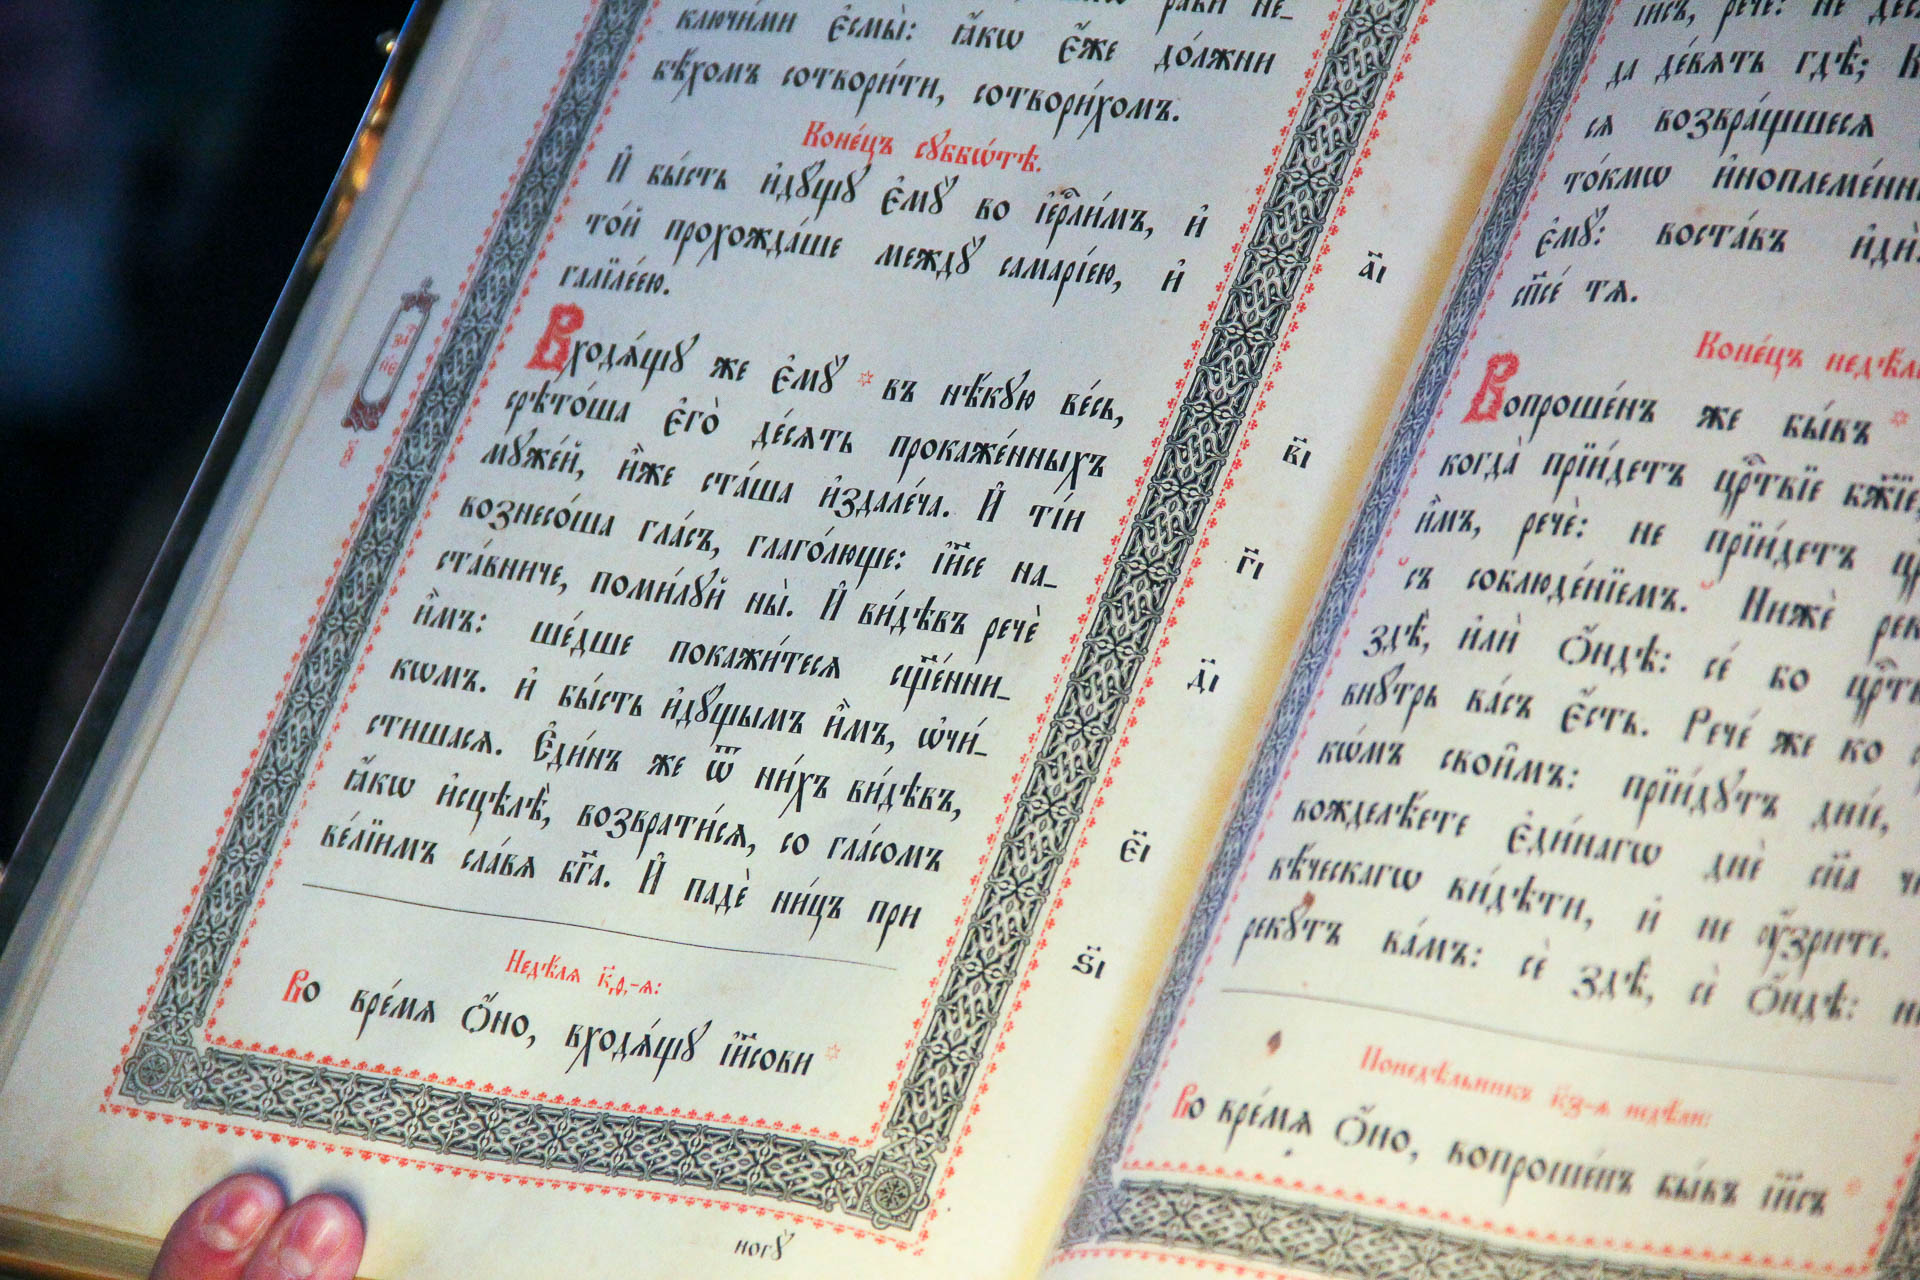 ключи́ми є҆смы̀: ꙗ҆́кѡ є҆́же до́лжни
бѣ́хомъ сотвори́ти, сотвори́хомъ.
Коне́цъ сꙋббѡ́тѣ.
И҆ бы́сть и҆дꙋ́щꙋ є҆мꙋ̀ во і҆ерⷭ҇ли́мъ, и҆
то́й прохожда́ше междꙋ̀ самарі́ею, и҆
галїле́ею.
Входѧ́щꙋ же є҆мꙋ̀ * въ нѣ́кꙋю ве́сь,
срѣто́ша є҆го̀ де́сѧть прокаже́нныхъ
мꙋже́й, и҆̀же ста́ша и҆здале́ча. И҆ ті́и
вознесо́ша гла́съ, глаго́люще: і҆и҃се на_
ста́вниче, поми́лꙋй ны̀. И҆ ви́дѣвъ речѐ
и҆̀мъ: ше́дше покажи́тесѧ сщ҃е́нни_
кѡмъ. и҆ бы́сть и҆дꙋ́щымъ и҆̀мъ, ѡ҆чи́_
стишасѧ. Є҆ди́нъ же ѿ ни́хъ ви́дѣвъ,
ꙗ҆́кѡ и҆сцѣлѣ̀, возврати́сѧ, со гла́сомъ
ве́лїимъ сла́вѧ бг҃а. И҆ падѐ ни́цъ при
Недѣ́лѧ к҃д.-ѧ:
Во вре́мѧ ѻ҆́но, входѧ́щꙋ і҆и҃сови *
ногꙋ̀
за҃
не҃
а҃і
в҃і
г҃і
д҃і
є҃і
ѕ҃і
і҆и҃съ, речѐ: не
да де́вѧть гдѣ̀;
сѧ возвра́щшесѧ
то́кмѡ
є҆мꙋ̀: воста́въ и҆дѝ
сп҃се́ тѧ.
Коне́цъ
Вопроше́нъ же бы́въ *
когда̀ прїи́детъ црⷭ҇твїе бж҃їе
и҆̀мъ, речѐ: не прїи́детъ
съ соблюде́нїемъ. Нижѐ
здѣ̀, и҆лѝ ѻ҆́ндѣ: се́ бо
внꙋ́трь ва́съ є҆́сть. Рече́ же ко
кѡ́мъ свои̑мъ: прїи́дꙋтъ дні́е,
вожделѣ́ете є҆ди́нагѡ
вѣ́ческагѡ ви́дѣти, и҆ не ᲂу҆́зрите.
рекꙋ́тъ ва́мъ: сѐ здѣ̀, сѐ ѻ҆́ндѣ:
Понедѣ́льникъ к҃з-ѧ недѣ́ли:
Во вре́мѧ ѻ҆́но, вопроше́нъ бы́въ і҆и҃съ *